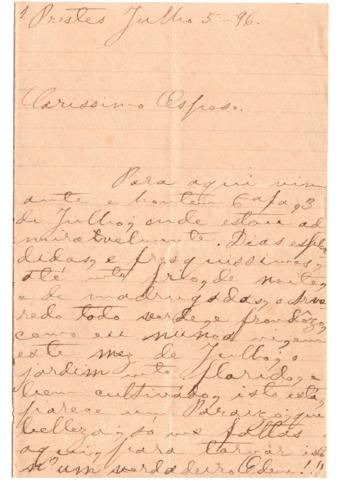 Prestes Julho 5-96.
Carissimo Esposo.
Para aqui vim
ante e hontem 6ª fª, 3
de Julho, onde estou ad
miravelmente. Dias esplen
didos, e fresquissimos,
até frio, de noite,
e de madrugadas, o arvo
redo todo verde, e frondozo,
como eu nunca vi, em
este mez de julho, o
jardim florido, e
bem cultivado, isto está,
parece um Paraizo, que
belleza, só me faltas
aqui, para tornar isto
n'um verdadeiro Eden!!!